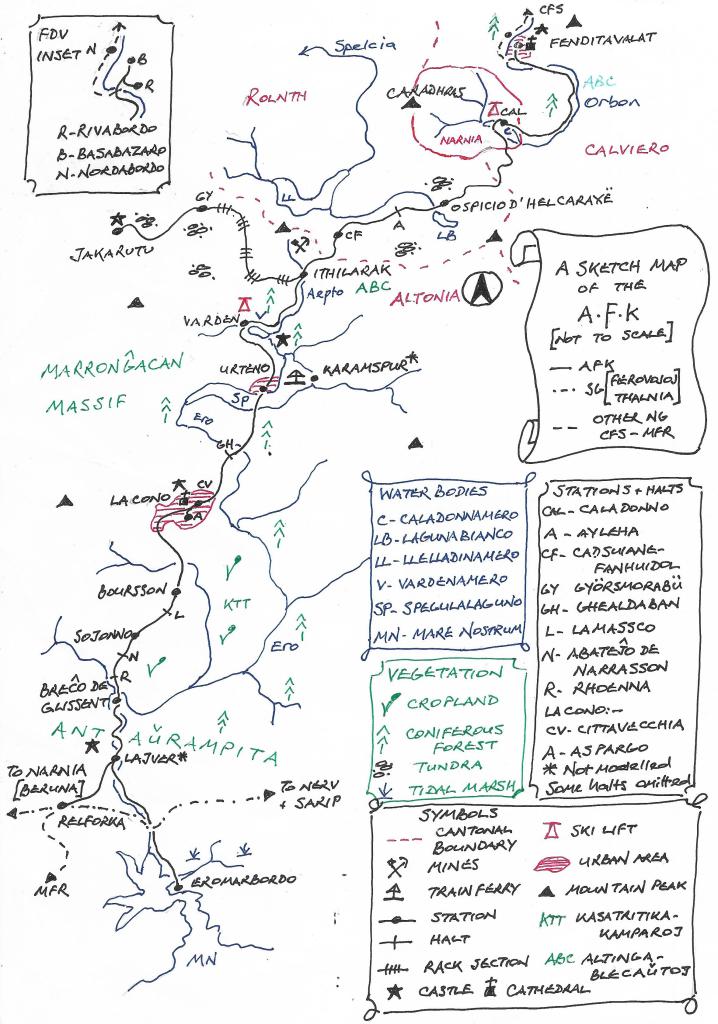 FDV
INSET N
B
R
R-RIVABORDO
B-BASABAZARO
N-NORDABORDO
Spelcia
ROLNTH
CFS
FENDITAVALAT
CARADHRAS
CAL
C
NARNIA
ABC
Orbon
CALVIERO
GY
LL
OSPICIO D'HELCARAXË
A
LB
CF
JAKARUTU
ITHILARAK
Aepto ABC
ALTONIA
VARDEN
V
A SKETCH MAP
OF THE
A.F.K
[NOT TO SCALE]
AFK
SG [FEROVOJOJ
THALNIA]
OTHER NG
CFS-MFR
MARRONĜACAN
MASSIF
URTENO
KARAMSPUR*
SP
Ero
GH
CV
LACONO
A
WATER BODIES
C-CALADONNAMERO
LB-LAGUNABIANCO
LL-LLELLADINAMERO
V-VARDENAMERO
SP-SPEGULALAGUNO
MN-MARE NOSTRUM
STATIONS + HALTS
CAL-CALADONNO
A-AYLEHA
CF-CADSUIANE-
FANHUIDOL
GY GYÖRSMORABÜ
GH-GHEALDABAN
L-LAMASSCO
N-ABATEĴO DE
NARRASSON
R-RHOENNA
LACONO:-
CV-CITTAVECCHIA
A-ASPARGO
* Not Modelled
Some halts omitted
BOURSSON
L
KTT
SOJONNO
N
R
Ero
BREĈO DE
GLISSENT
ANT AŬRAMPITA
LAJVER*
VEGETATION
CROPLAND
CONIFEROUS
FOREST
TUNDRA
TIDAL MARSH
TO NARNIA
[BERUNA]
RELFORKA
TO NERV
+ SARIP
MFR
EROMARBORDO
MN
SYMBOLS
CANTONAL
BOUNDARY
MINES
TRAIN FERRY
STATION
HALT
RACK SECTION
CASTLE
CATHEDRAL
SKI LIFT
URBAN AREA
MOUNTAIN PEAK
KTT KASATRITIKA-
KAMPAROJ
ABC ALTINGA-
BLECAŬTOJ